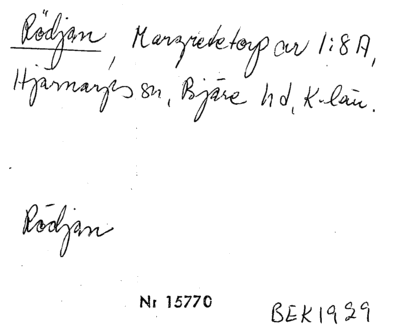 Rödjan, Margretetorp av 1:8 A,
Hjärnarps sn, Bjäre hd, K-län.
Rödjan
Nr 15770
BEK1929